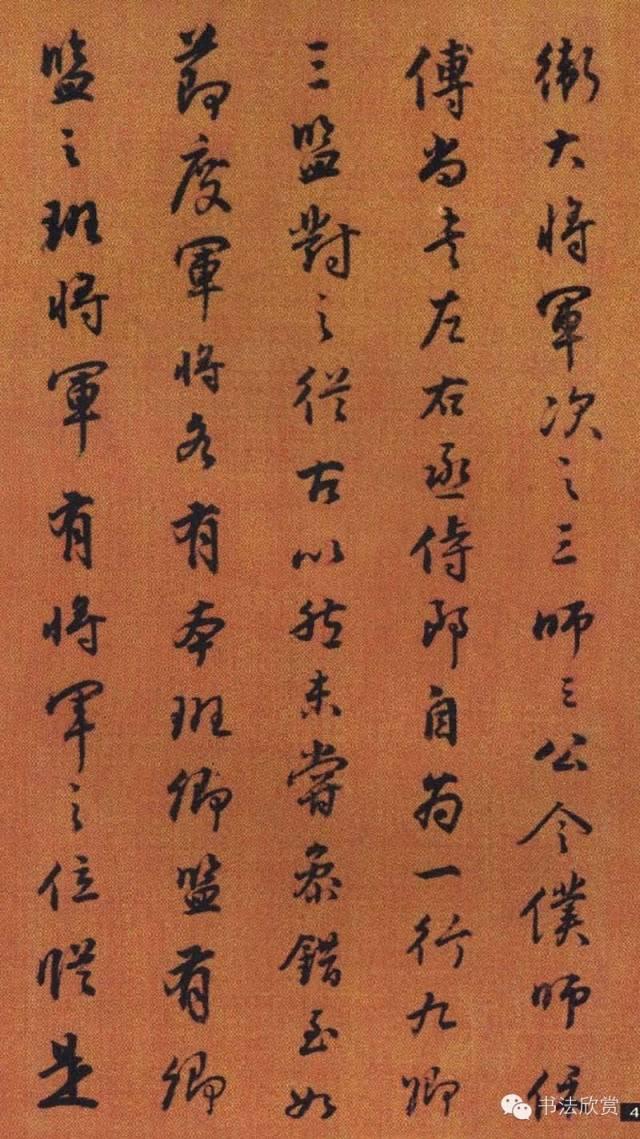 衛大將軍次之三師三公令僕師保
傅尚書左右丞侍郎自為一行九卿
三監對之從古以然未嘗參錯至如
節度軍將各有本班卿監有卿
監之班將軍有將軍之位縱是
书法欣赏
4